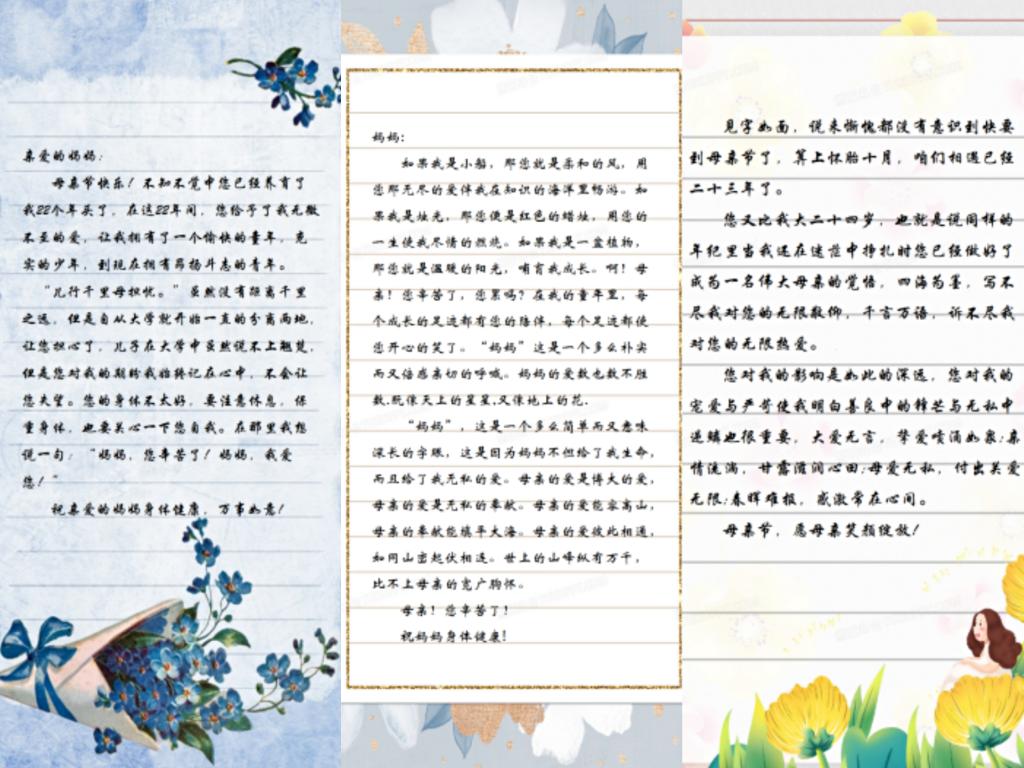 亲爱的妈妈：
母亲节快乐！不知不觉中您已经养育了
我22个年头了，在这22年间，您给予了我无微
不至的爱，让我拥有了一个愉快的童年，充
实的少年，到现在拥有昂扬斗志的青年。
“儿行千里母担忧。”虽然没有距离千里
之远，但是自从大学就开始一直的分离两地，
让您担心了，儿子在大学中虽然说不上翘楚，
但是您对我的期盼我始终记在心中，不会让
您失望。您的身体不太好，要注意休息，保
重身体，也要关心一下您自我。在那里我想
说一句：“妈妈，您辛苦了！妈妈，我爱
您！”
祝亲爱的妈妈身体健康，万事如意！
妈妈：
如果我是小船，那您就是柔和的风，用
您那无尽的爱伴我在知识的海洋里畅游。如
果我是烛光，那您便是红色的蜡烛，用您的
一生使我尽情的燃烧。如果我是一盆植物，
那您就是温暖的阳光，哺育我成长。啊！母
亲！您辛苦了，您累吗？在我的童年里，每
个成长的足迹都有您的陪伴，每个足迹都使
您开心的笑了。“妈妈”这是一个多么朴实
而又倍感亲切的呼喊。妈妈的爱数也数不胜
数.既像天上的星星,又像地上的花.
“妈妈”，这是一个多么简单而又意味
深长的字眼，这是因为妈妈不但给了我生命，
而且给了我无私的爱。母亲的爱是博大的爱，
母亲的爱是无私的奉献。母亲的爱能容高山，
母亲的奉献能填平大海。母亲的爱彼此相通，
如同山峦起伏相连。世上的山峰纵有万千，
比不上母亲的宽广胸怀。
母亲！您辛苦了！
祝妈妈身体健康!
见字如面，说来惭愧都没有意识到快要
到母亲节了，算上怀胎十月，咱们相遇已经
二十三年了。
您又比我大二十四岁，也就是说同样的
年纪里当我还在迷茫中挣扎时您已经做好了
成为一名伟大母亲的觉悟，四海为墨，写不
尽我对您的无限敬仰，千言万语，诉不尽我
对您的无限热爱。
您对我的影响是如此的深远，您对我的
宠爱与严苛使我明白善良中的锋芒与无私中
逆鳞也很重要，大爱无言，挚爱喷涌如泉;亲
情流淌，甘露滋润心田;母爱无私，付出关爱
无限;春晖难报，感激常在心间。
母亲节，愿母亲笑颜绽放！